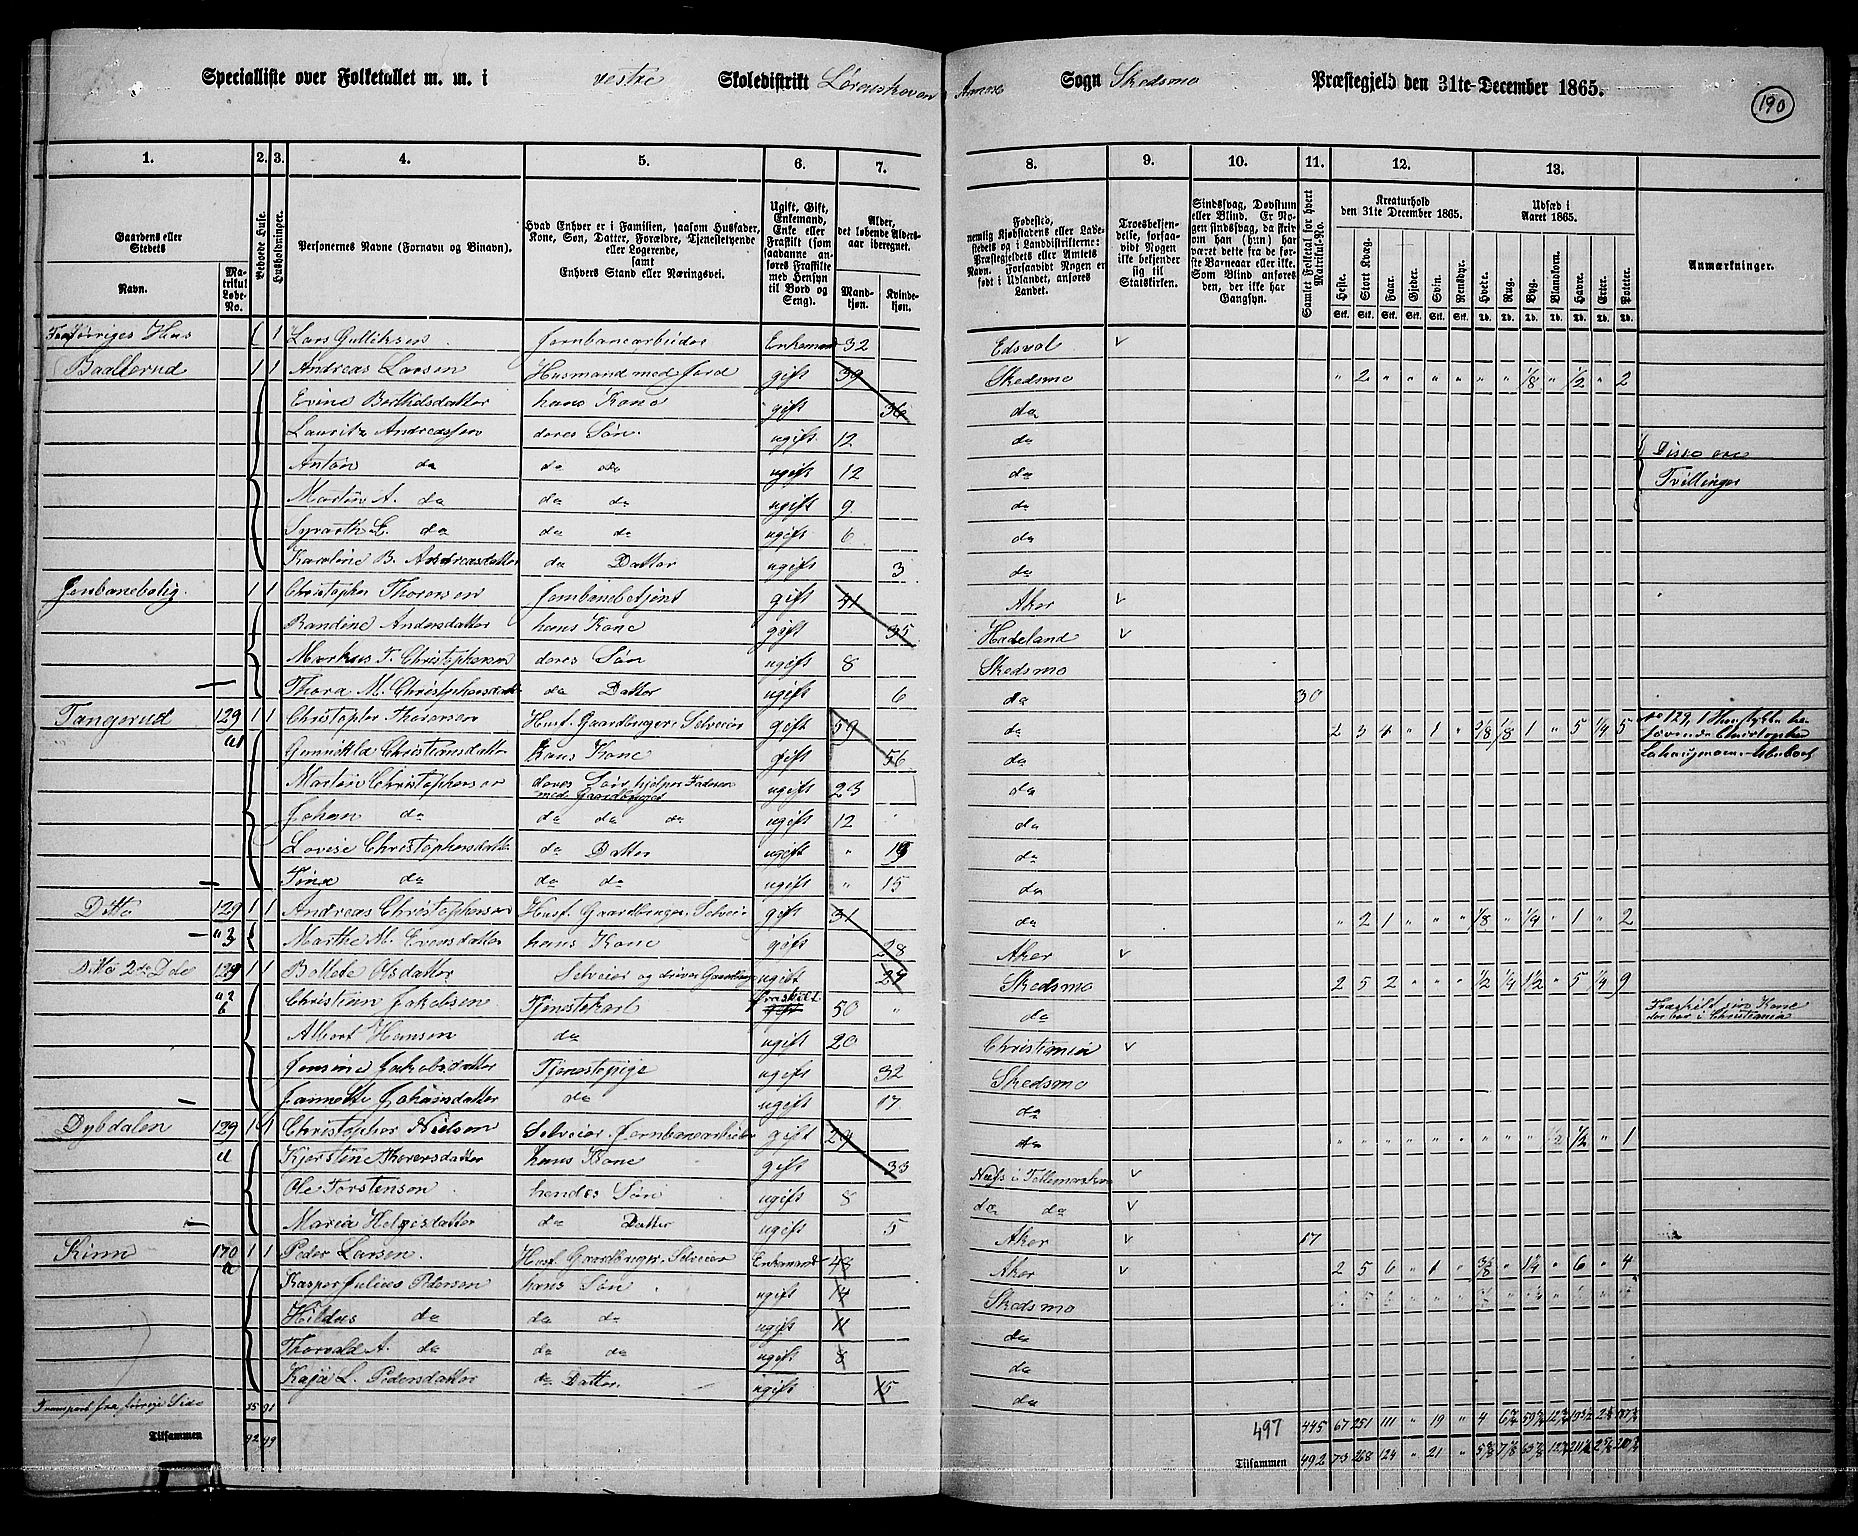 Specialliste over Folketallet m. m. i vestre Skoledistrikt Lørenskoven Annex Sogn Skedsmo Præstegjeld den 31te December 1865.
190
1. 2. 3. 4. 5. 6. 7. 8. 9. 10. 11. 12. 13.
Gaardens eller Stedets
Navn.
Matrikul Løbe-No.
Beboede Huse.
Husholdninger.
Personernes Navne (Fornavn og Binavn).
Hvad Enhver er i Familien, saasom Husfader, Kone, Søn, Datter, Forældre, Tjenestetyende eller Logerende, samt Enhvers Stand eller Næringsvei.
Ugift, Gift, Enkemand, Enke eller Fraskilt (som saadanne anføres Fraskilte med Hensyn til Bord og Seng).
Alder, det løbende Aldersaar iberegnet.
Mandkjøn. Kvindekjøn.
Fødested, nemlig Kjøbstadens eller Ladestedets og i Landdistrikterne: Præstegjeldets eller Amtets Navn. Forsaavidt Nogen er født i Udlandet, anføres Landet.
Troesbekjendelse, forsaavidt Nogen ikke bekjender sig til Statskirken.
Sindssvag, Døvstum eller Blind. Er Nogen sindssvag, da skrives om han (hun) har været dette fra de første Barneaar eller ikke. Som Blind anføres den, der ikke har Gangsyn.
Samlet Folketal for hvert Matrikul-No.
Kreaturhold den 31te December 1865.
Heste. Stort Kvæg. Faar. Gjeder. Svin. Rensdyr.
Udsæd i Aaret 1865.
Hvede. Rug. Byg. Blandkorn. Havre. Erter. Poteter.
Anmærkninger.
Huus 1 Lars Gulliksen Jernbanearbeider Enkemand 32 Edsvol v
Baallerud 1 1 Andreas Larsen Husmand med Jord gift 39 Skedsmo " 2 " " " " " " 1/8 " 1/2 " 2
Evine Bottelsdatter hans Kone gift 36 do
Lauritz Andreassen deres Søn ugift 12 do Disse ere
Anton do do do ugift 12 do Tvillinger
Martin A. do do do ugift 9 do
E. do do do ugift 6 do
Karoline B. Andreasdatter do Datter ugift 3 do
Jernbanebolig. 1 1 Christopher Thoresen Jernbanebetjent gift 41 Aker v
Randine Andersdatter hans Kone gift 35 Hadeland v
Markus T. Christophersen deres Søn ugift 8 Skedsmo
Thora M. Christophersdatter do Datter ugift 6 do 30
Tangerud 129 a1 1 1 Christopher Thoresen Husf. Gaardbruger Selveier gift 59 do 2 3 4 " 1 " 1 " 5 1/4 5
Christiansdatter hans Kone gift 56 do
Martin Christophersen deres Søn hjelper Faderen med Gaardbruget ugift 23 do
Johan do do do do ugift 12 do
Lovise Christophersdatter do Datter ugift " 19 do
Tina do do do ugift " 15 do
Ditto 129 a3 1 1 Andreas Christophersen Husf. Gaardbruger Selveier gift 31 do " 2 1 " " " 1/8 " 1/4 " 1 " 2
Marthe M. Evensdatter hans Kone gift 28 Aker v
Ditto 129 1 1 Bollete Olsdatter Selveier og driver Gaardbrug ugift 27 Skedsmo 2 5 2 " " " 1/2 1/4 1 1/2 " 5 1/4 9
Christian Jakobsen Tjenestekarl Fraskilt 50 " do Fraskilt sin Kone der bor i Christiania
Albert Hansen do ugift 20 Christiania v
Jensine Jakobsdatter Tjenestepige ugift 32 Skedsmo
Jannette Johansdatter do ugift 17 do
Dybdalen 129 1 1 Christopher Nielsen Selveier Jernbanearbeider gift 29 do " " " " " " " " " 1/2 1/2 " 1
Kjerstine hans Kone gift 33 i Tellemarken v
Ole Torstensen hendes Søn ugift 8 do do v
Maria Helgesdatter do Datter ugift 5 Aker v 17
Kinn 170 a 1 1 Peder Larsen. Husf. Gaardbruger Selveier Enkemand 48 Aker v 2 5 6 " 1 " 3/8 " 1 1/4 " 6 " 4
Kasper Julius Pedersen hans Søn ugift 14 Skedsmo
do do do ugift 11 do
Thorvald A. do do do ugift 8 do
Kaja L. Pedersdatter do Datter. ugift 15 do
Transport fra forrige Side 85 91 497 445 67 251 111 " 19 " 4
Tilsammen 92 99 Tilsammen 492 73 268 124 " 21 "